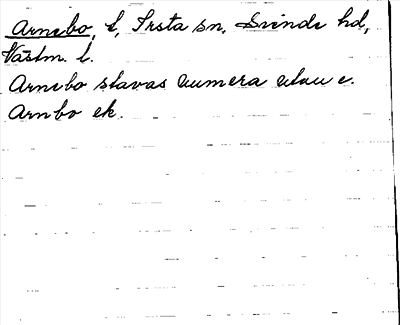 Arnebo, l, Irsta sn, Siende hd,
Västm. l.
Arnebo stavas numera utan e.
Arnbo ek.